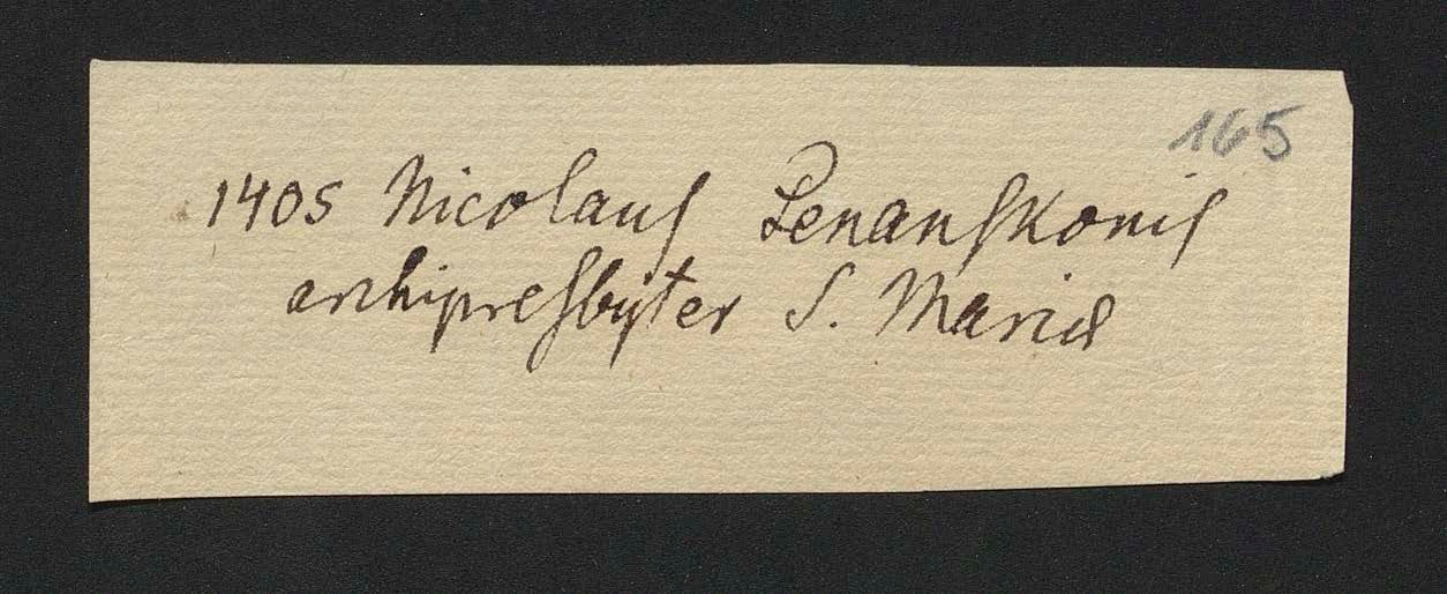 165
1405 Nicolaus Penanskonis
archipresbyter S. Mariæ